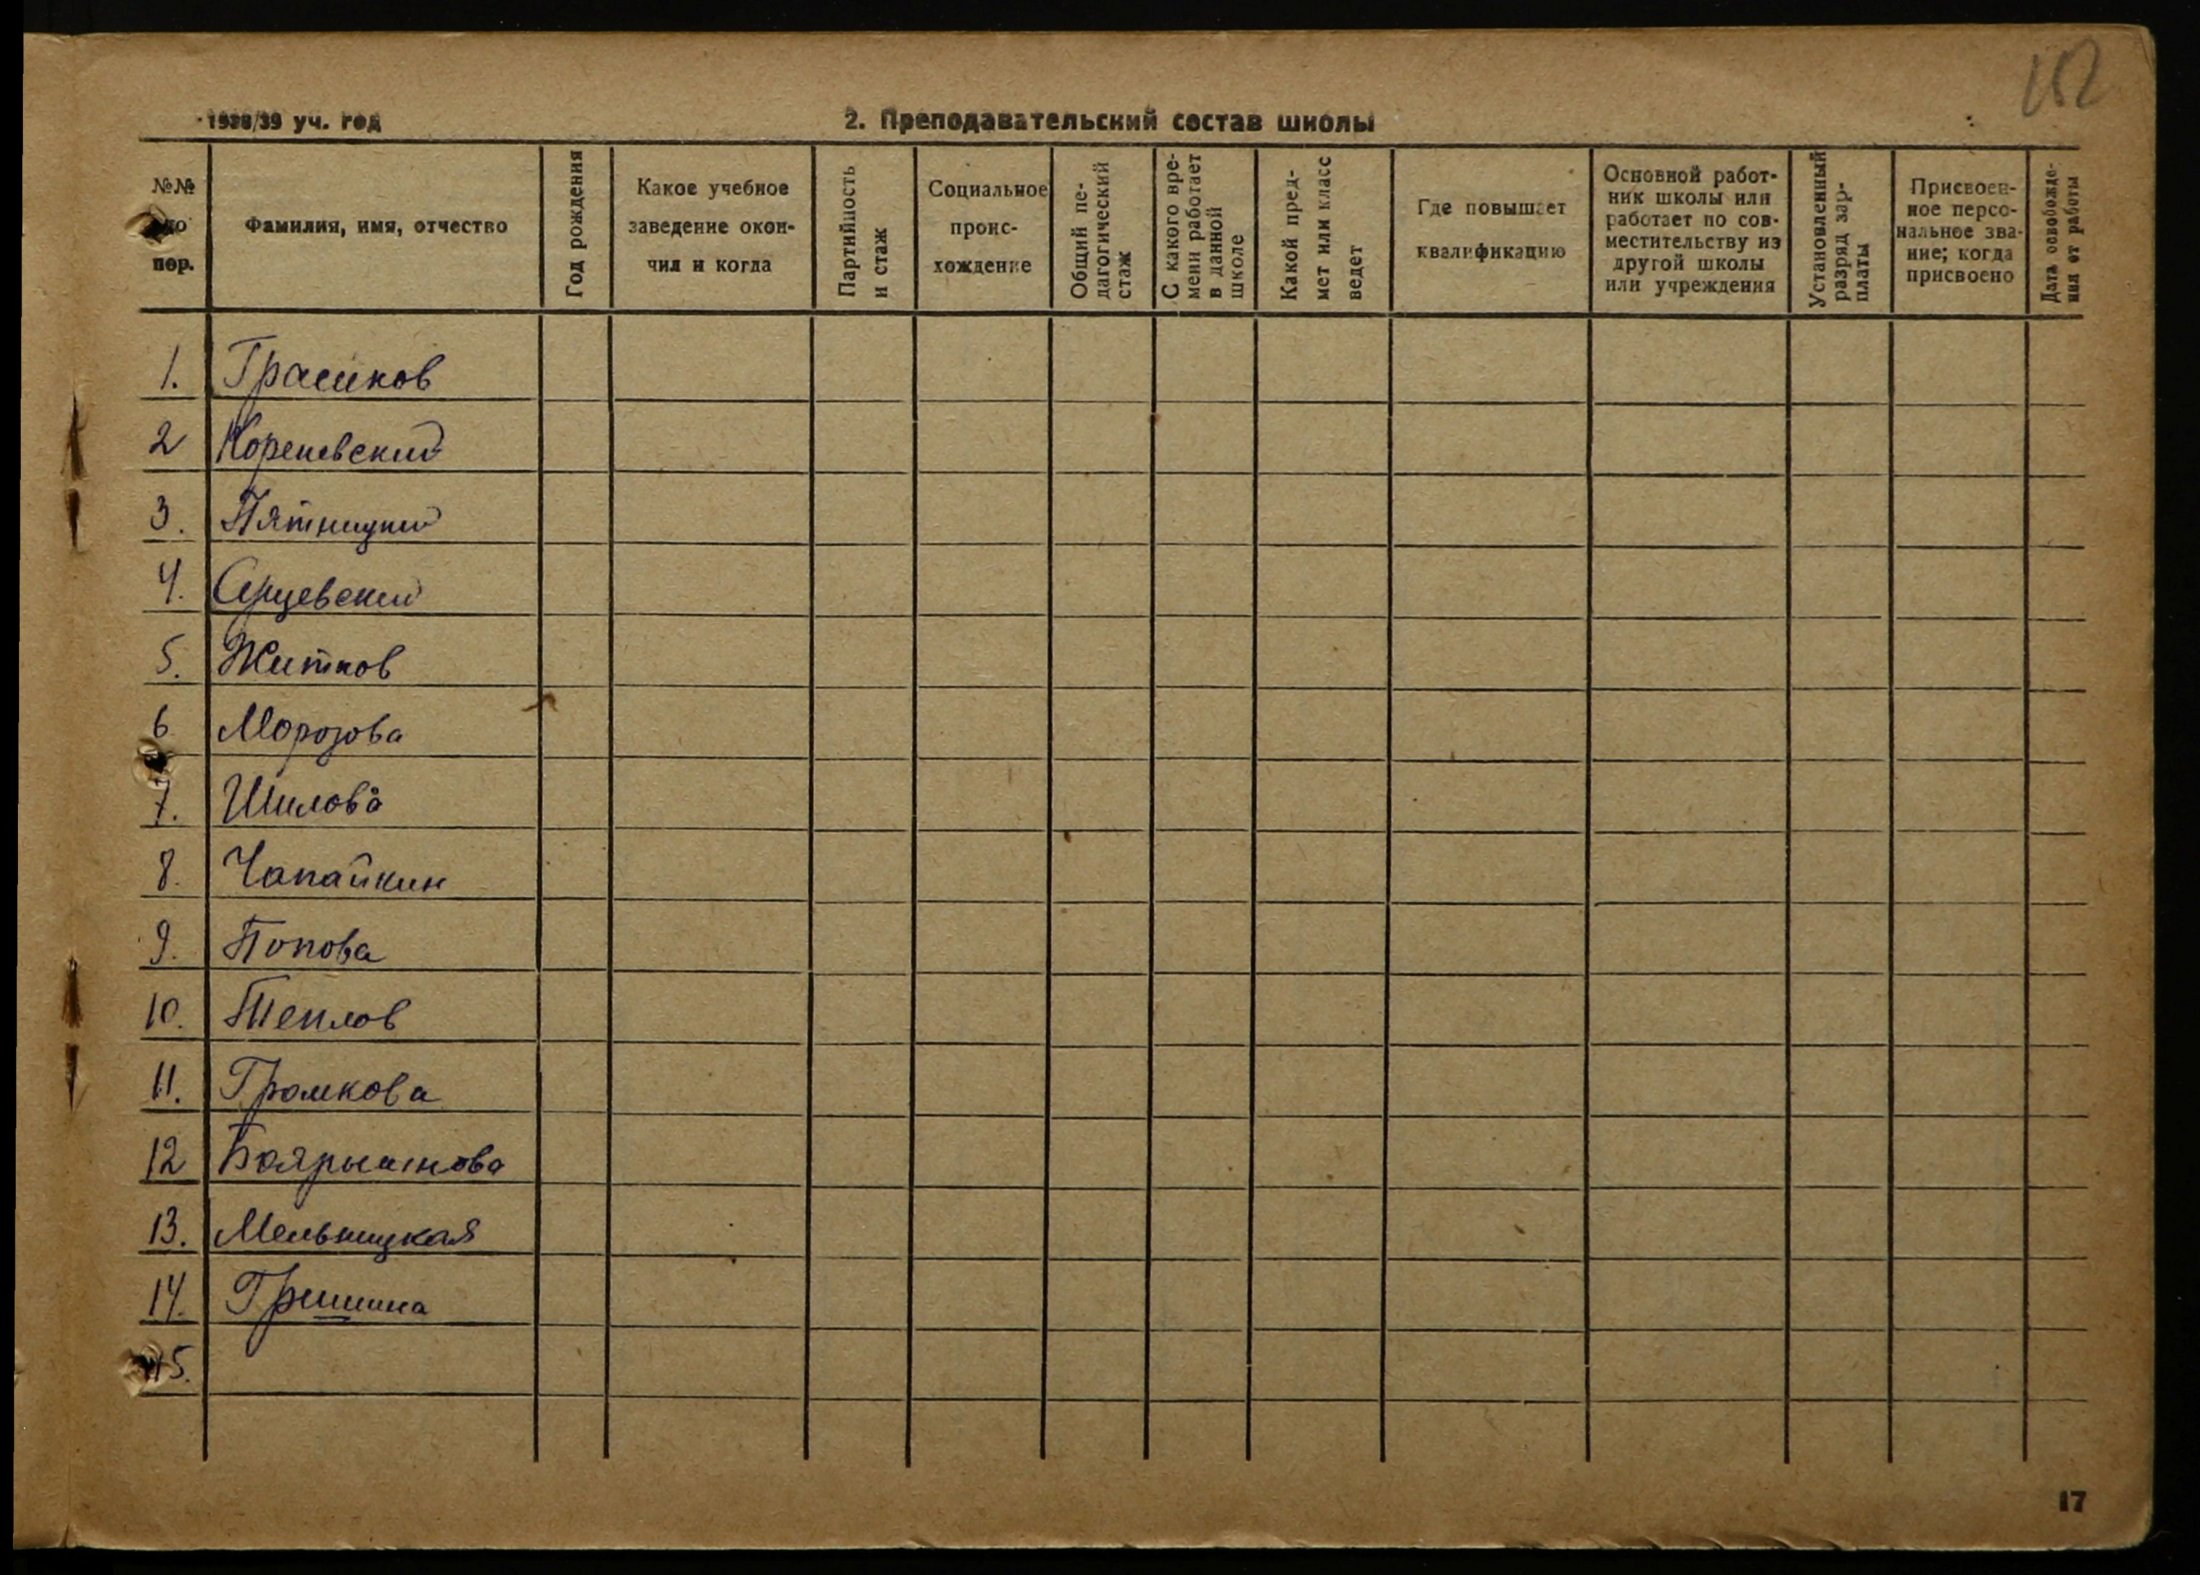 152
1938/39 уч. год
2. Преподавательский состав школы
№№ по пор.
Фамилия, имя, отчество
Год рождения
Какое учебное заведение окончил и когда
Партийность и стаж
Социальное происхождение
Общий педагогический стаж
С какого времени работает в данной школе
Какой предмет или класс ведет
Где повышает квалификацию
Основной работник школы или работает по совместительству из другой школы или учреждения
Установленный разряд зарплаты
Присвоенное персональное звание; когда присвоено
Дата освобождения от работы
1. Грасиков
2 Кореневский
3. Пятницкий
4. Серцевский
5. Житков
6 Морозова
7. Шилова
8. Чапайкин
9. Попова
10. Теплов
11. Громкова
12 Боярышнова
13. Мельницкая
14. Гришина
15.
17